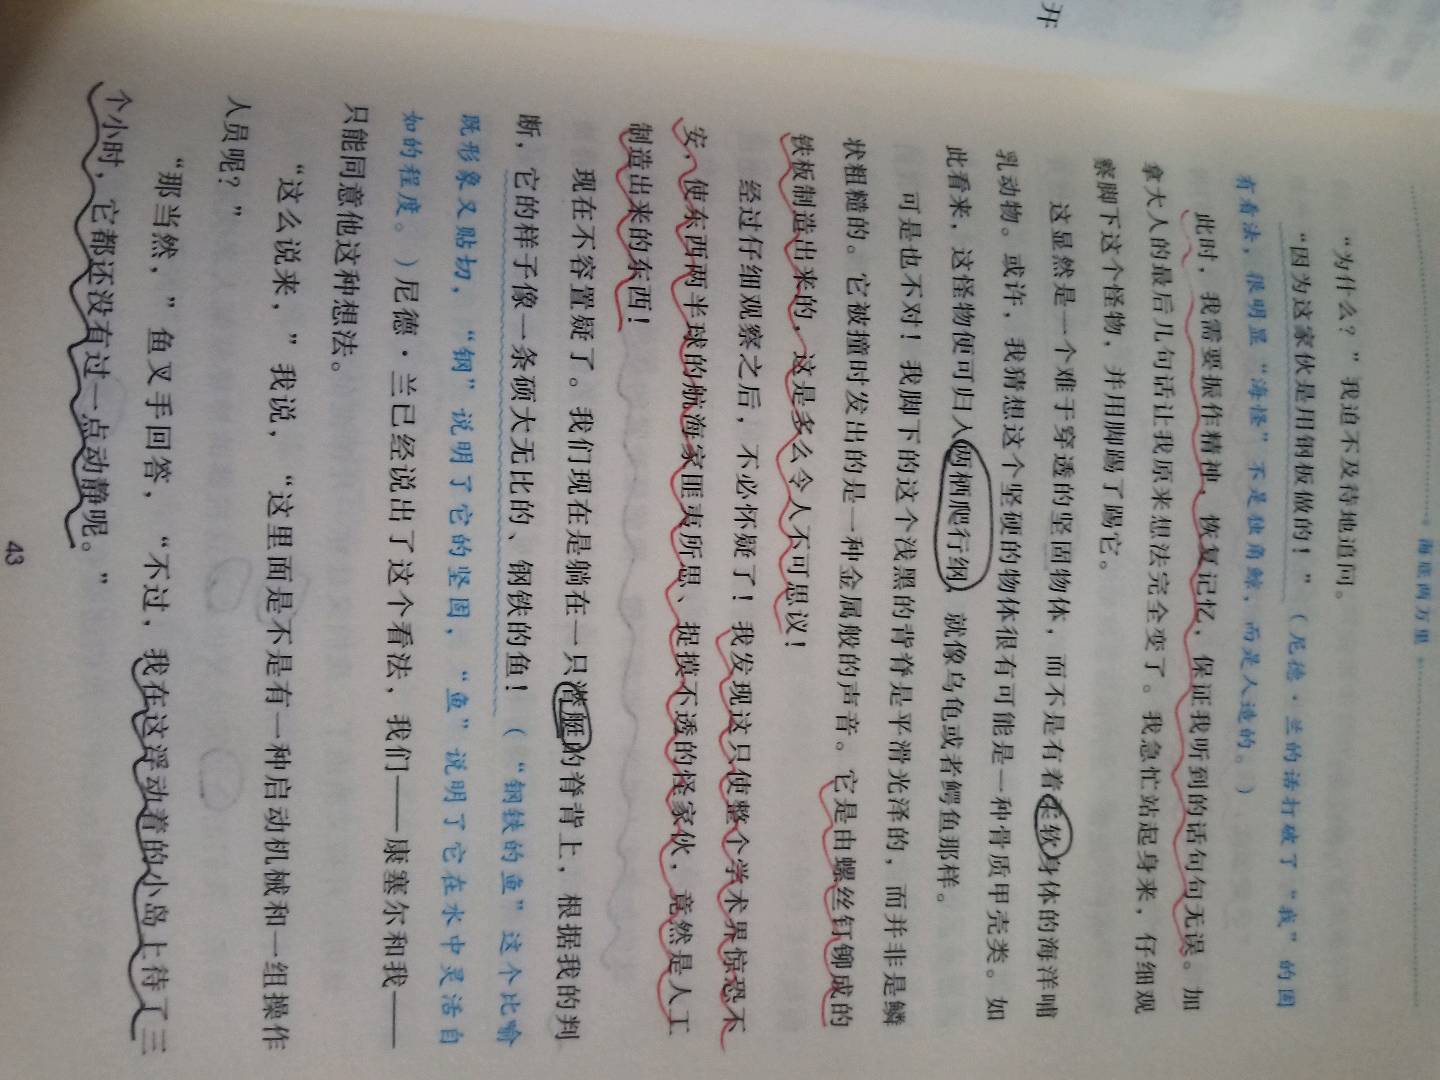 开
海底两万里
“为什么？”我迫不及待地追问。
“因为这家伙是用钢板做的！”（尼德·兰的话打破了“我”的固
有看法，很明显“海怪”不是独角鲸，而是人造的。）
此时，我需要振作精神，恢复记忆，保证我听到的话句句无误。加
拿大人的最后几句话让我原来想法完全变了。我急忙站起身来，仔细观
察脚下这个怪物，并用脚踢了踢它。
这显然是一个难于穿透的坚固物体，而不是有着柔软身体的海洋哺
乳动物。或许，我猜想这个坚硬的物体很有可能是一种骨质甲壳类。如
此看来，这怪物便可归入两栖爬行纲，就像乌龟或者鳄鱼那样。
可是也不对！我脚下的这个浅黑的背脊是平滑光泽的，而并非是鳞
状粗糙的。它被撞时发出的是一种金属般的声音。它是由螺丝钉铆成的
铁板制造出来的，这是多么令人不可思议！
经过仔细观察之后，不必怀疑了！我发现这只使整个学术界惊恐不
安，使东西两半球的航海家匪夷所思、捉摸不透的怪家伙，竟然是人工
制造出来的东西！
现在不容置疑了。我们现在是躺在一只潜艇的脊背上，根据我的判
断，它的样子像一条硕大无比的、钢铁的鱼！（“钢铁的鱼”这个比喻
既形象又贴切，“钢”说明了它的坚固，“鱼”说明了它在水中灵活自
如的程度。）尼德·兰已经说出了这个看法，我们——康塞尔和我——
只能同意他这种想法。
“这么说来，”我说，“这里面是不是有一种启动机械和一组操作
人员呢？”
“那当然，”鱼叉手回答，“不过，我在这浮动着的小岛上待了三
个小时，它都还没有过一点动静呢。”
43